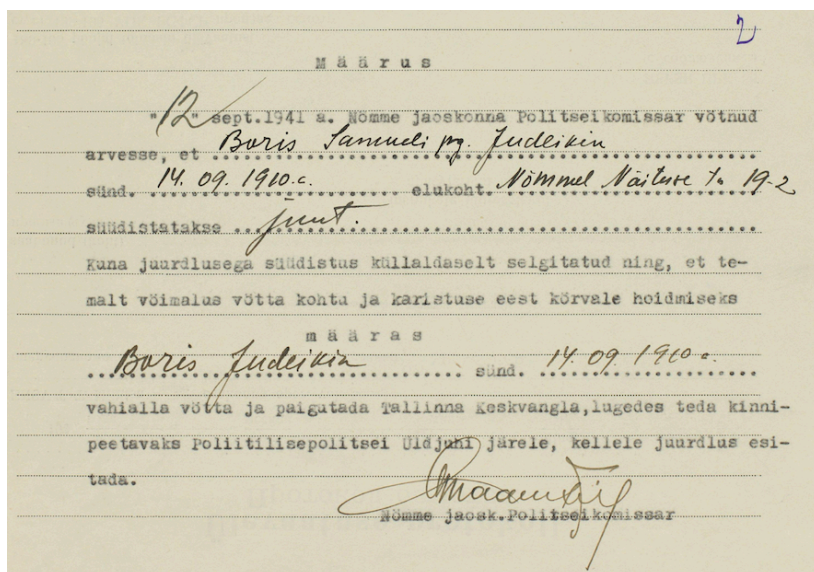 2
Määrus
"12" sept.1941 a. Nõmme jaoskonna Politseikomissar võtnud
arvesse, et Boris Samueli pg. Judeikin
sünd. 14. 09. 1910.a. elukoht. Nõmmel Näituse tn 19-2
süüdistatakse juut.
Kuna juurdlusega süüdistus küllaldaselt selgitatud ning, et te-
malt võimalus võtta kohtu ja karistuse eest kõrvale hoidmiseks
määras
Boris Judeikin sünd. 14. 09. 1910 a.
vahialla võtta ja paigutada Tallinna Keskvangla,lugedes teda kinni-
peetavaks Poliitilisepolitsei Üldjuhi järele, kellele juurdlus esi-
tada.
Nõmme jaosk.Politseikomissar